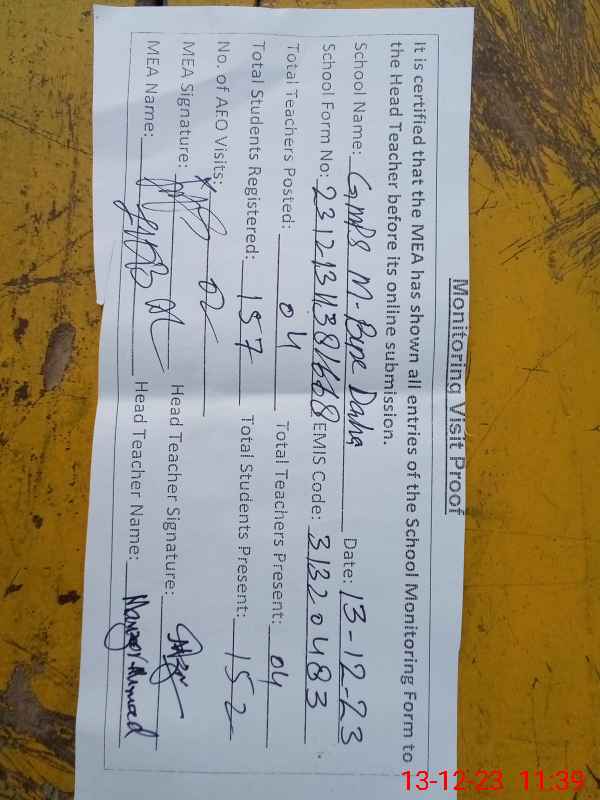 Monitoring Visit Proof
It is certified that the MEA has shown all entries of the School Monitoring Form to
the Head Teacher before its online submission.
School Name: GMPS M. Daha Date: 13-12-23
School Form No: EMIS Code: 31320483
Total Teachers Posted: 04 Total Teachers Present: 04
Total Students Registered: 157 Total Students Present: 152
No. of AEO Visits: 02
MEA Signature: Head Teacher Signature:
MEA Name: Head Teacher Name: Manzoor Ahmad
13-12-23 11:39